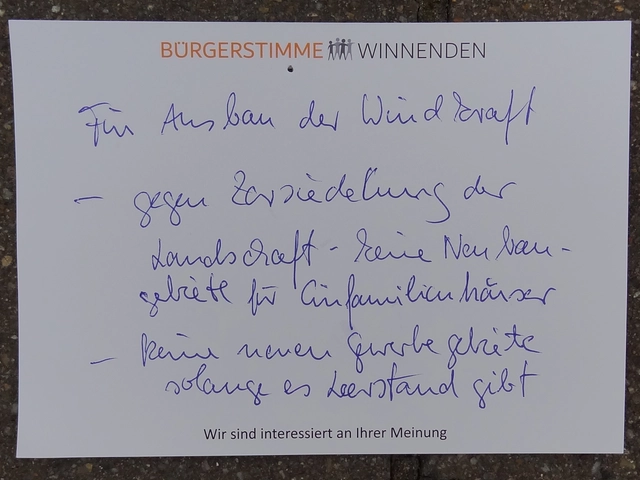 BÜRGERSTIMME WINNENDEN
Für Ausbau der Windkraft
- gegen Zersiedelung der
Landschaft - keine Neubau-
gebiete für Einfamilienhäuser
- keine neuen Gewerbegebiete
solange es Leerstand gibt
Wir sind interessiert an Ihrer Meinung